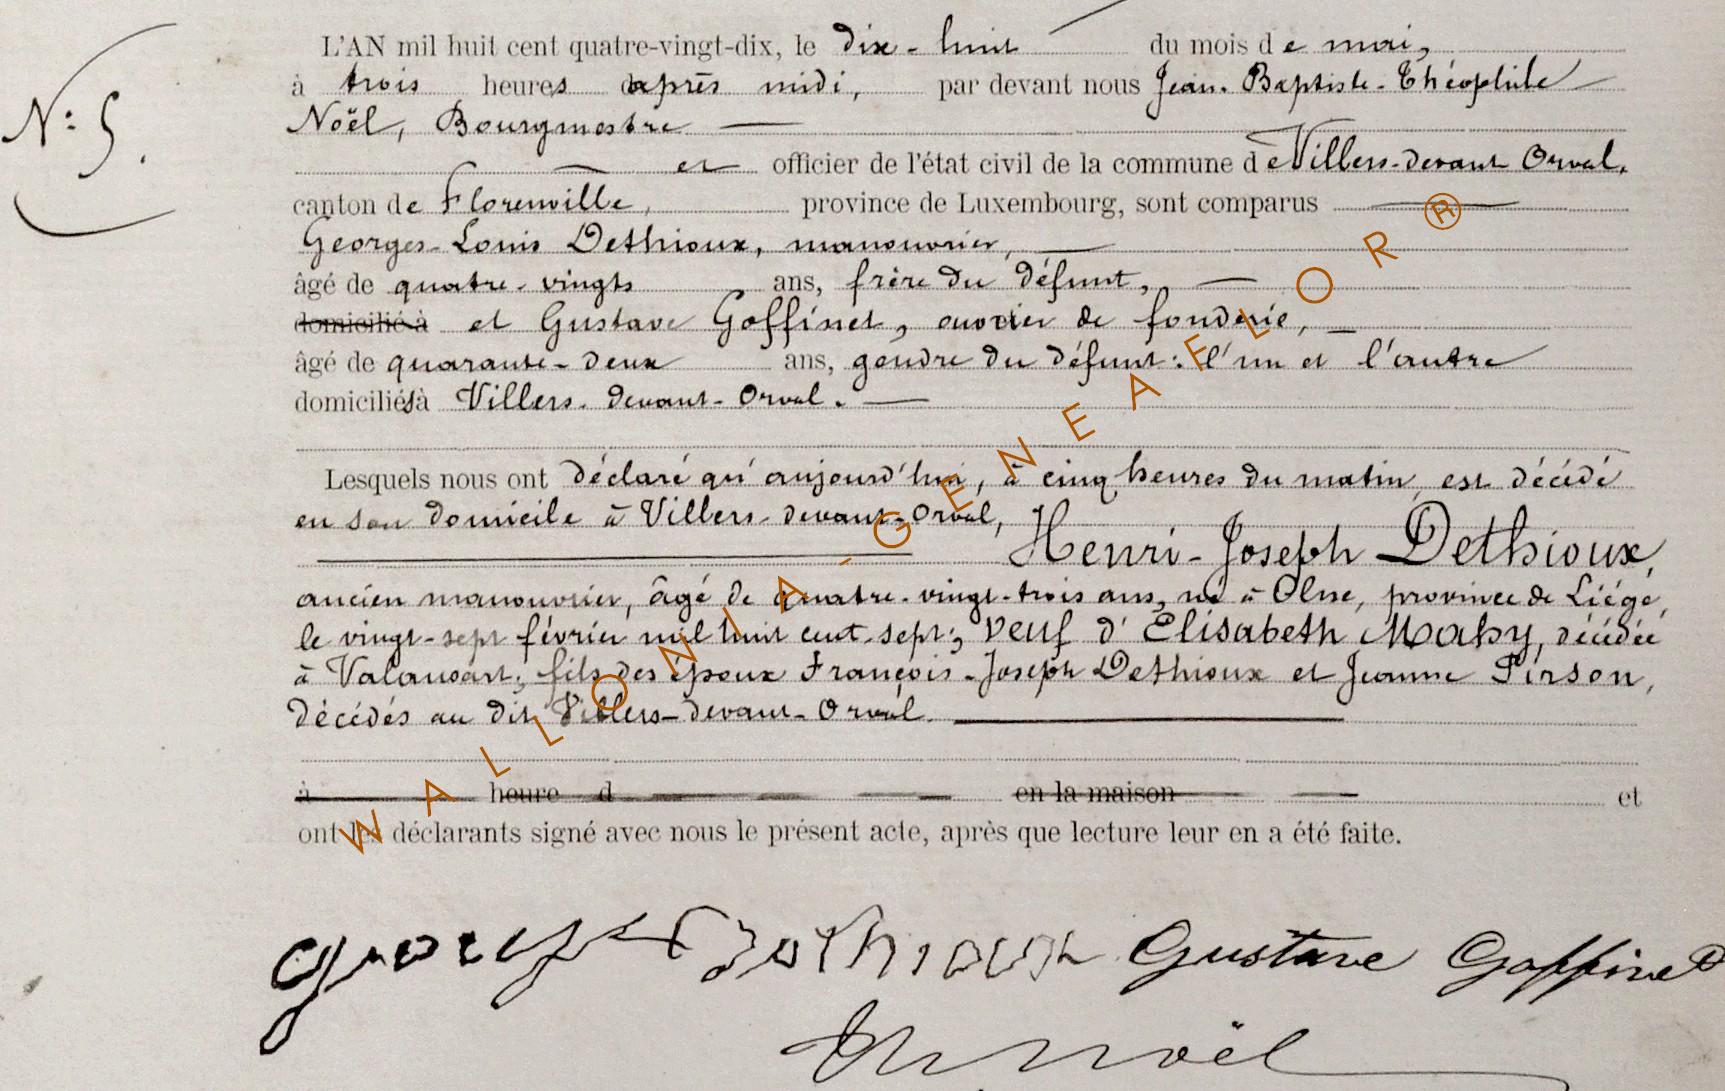 N° 5.
L'AN mil huit cent quatre-vingt-dix, le dix-huit du mois de mai,
à trois heures après midi, par devant nous Jean-Baptiste-Théophile
Noël, Bourgmestre
et officier de l'état civil de la commune de Villers-devant Orval,
canton de Florenville, province de Luxembourg, sont comparus
Georges-Louis Dethioux, manouvrier,
âgé de quatre-vingts ans, frère du défunt,
domicilié à et Gustave Goffinet, ouvrier de fonderie,
âgé de quarante-deux ans, gendre du défunt: l'un et l'autre
domiciliés à Villers-devant-Orval.
Lesquels nous ont déclaré qu'aujourd'hui, à cinq heures du matin, est décédé
en son domicile à Villers-devant-Orval,
Henri-Joseph Dethioux,
ancien manouvrier, âgé de quatre-vingt-trois ans, né à Olne, province de Liége,
le vingt-sept février mil huit cent-sept; veuf d'Elisabeth Mahy, décédée
à Valansart; fils des époux François-Joseph Dethioux et Jeanne Pirson,
décédés au dit Villers-devant-Orval.
à heure d en la maison et
ont les déclarants signé avec nous le présent acte, après que lecture leur en a été faite.
Dethioux Gustave Goffinet
Th Noël
WALLONIA-GENEAFLOR®